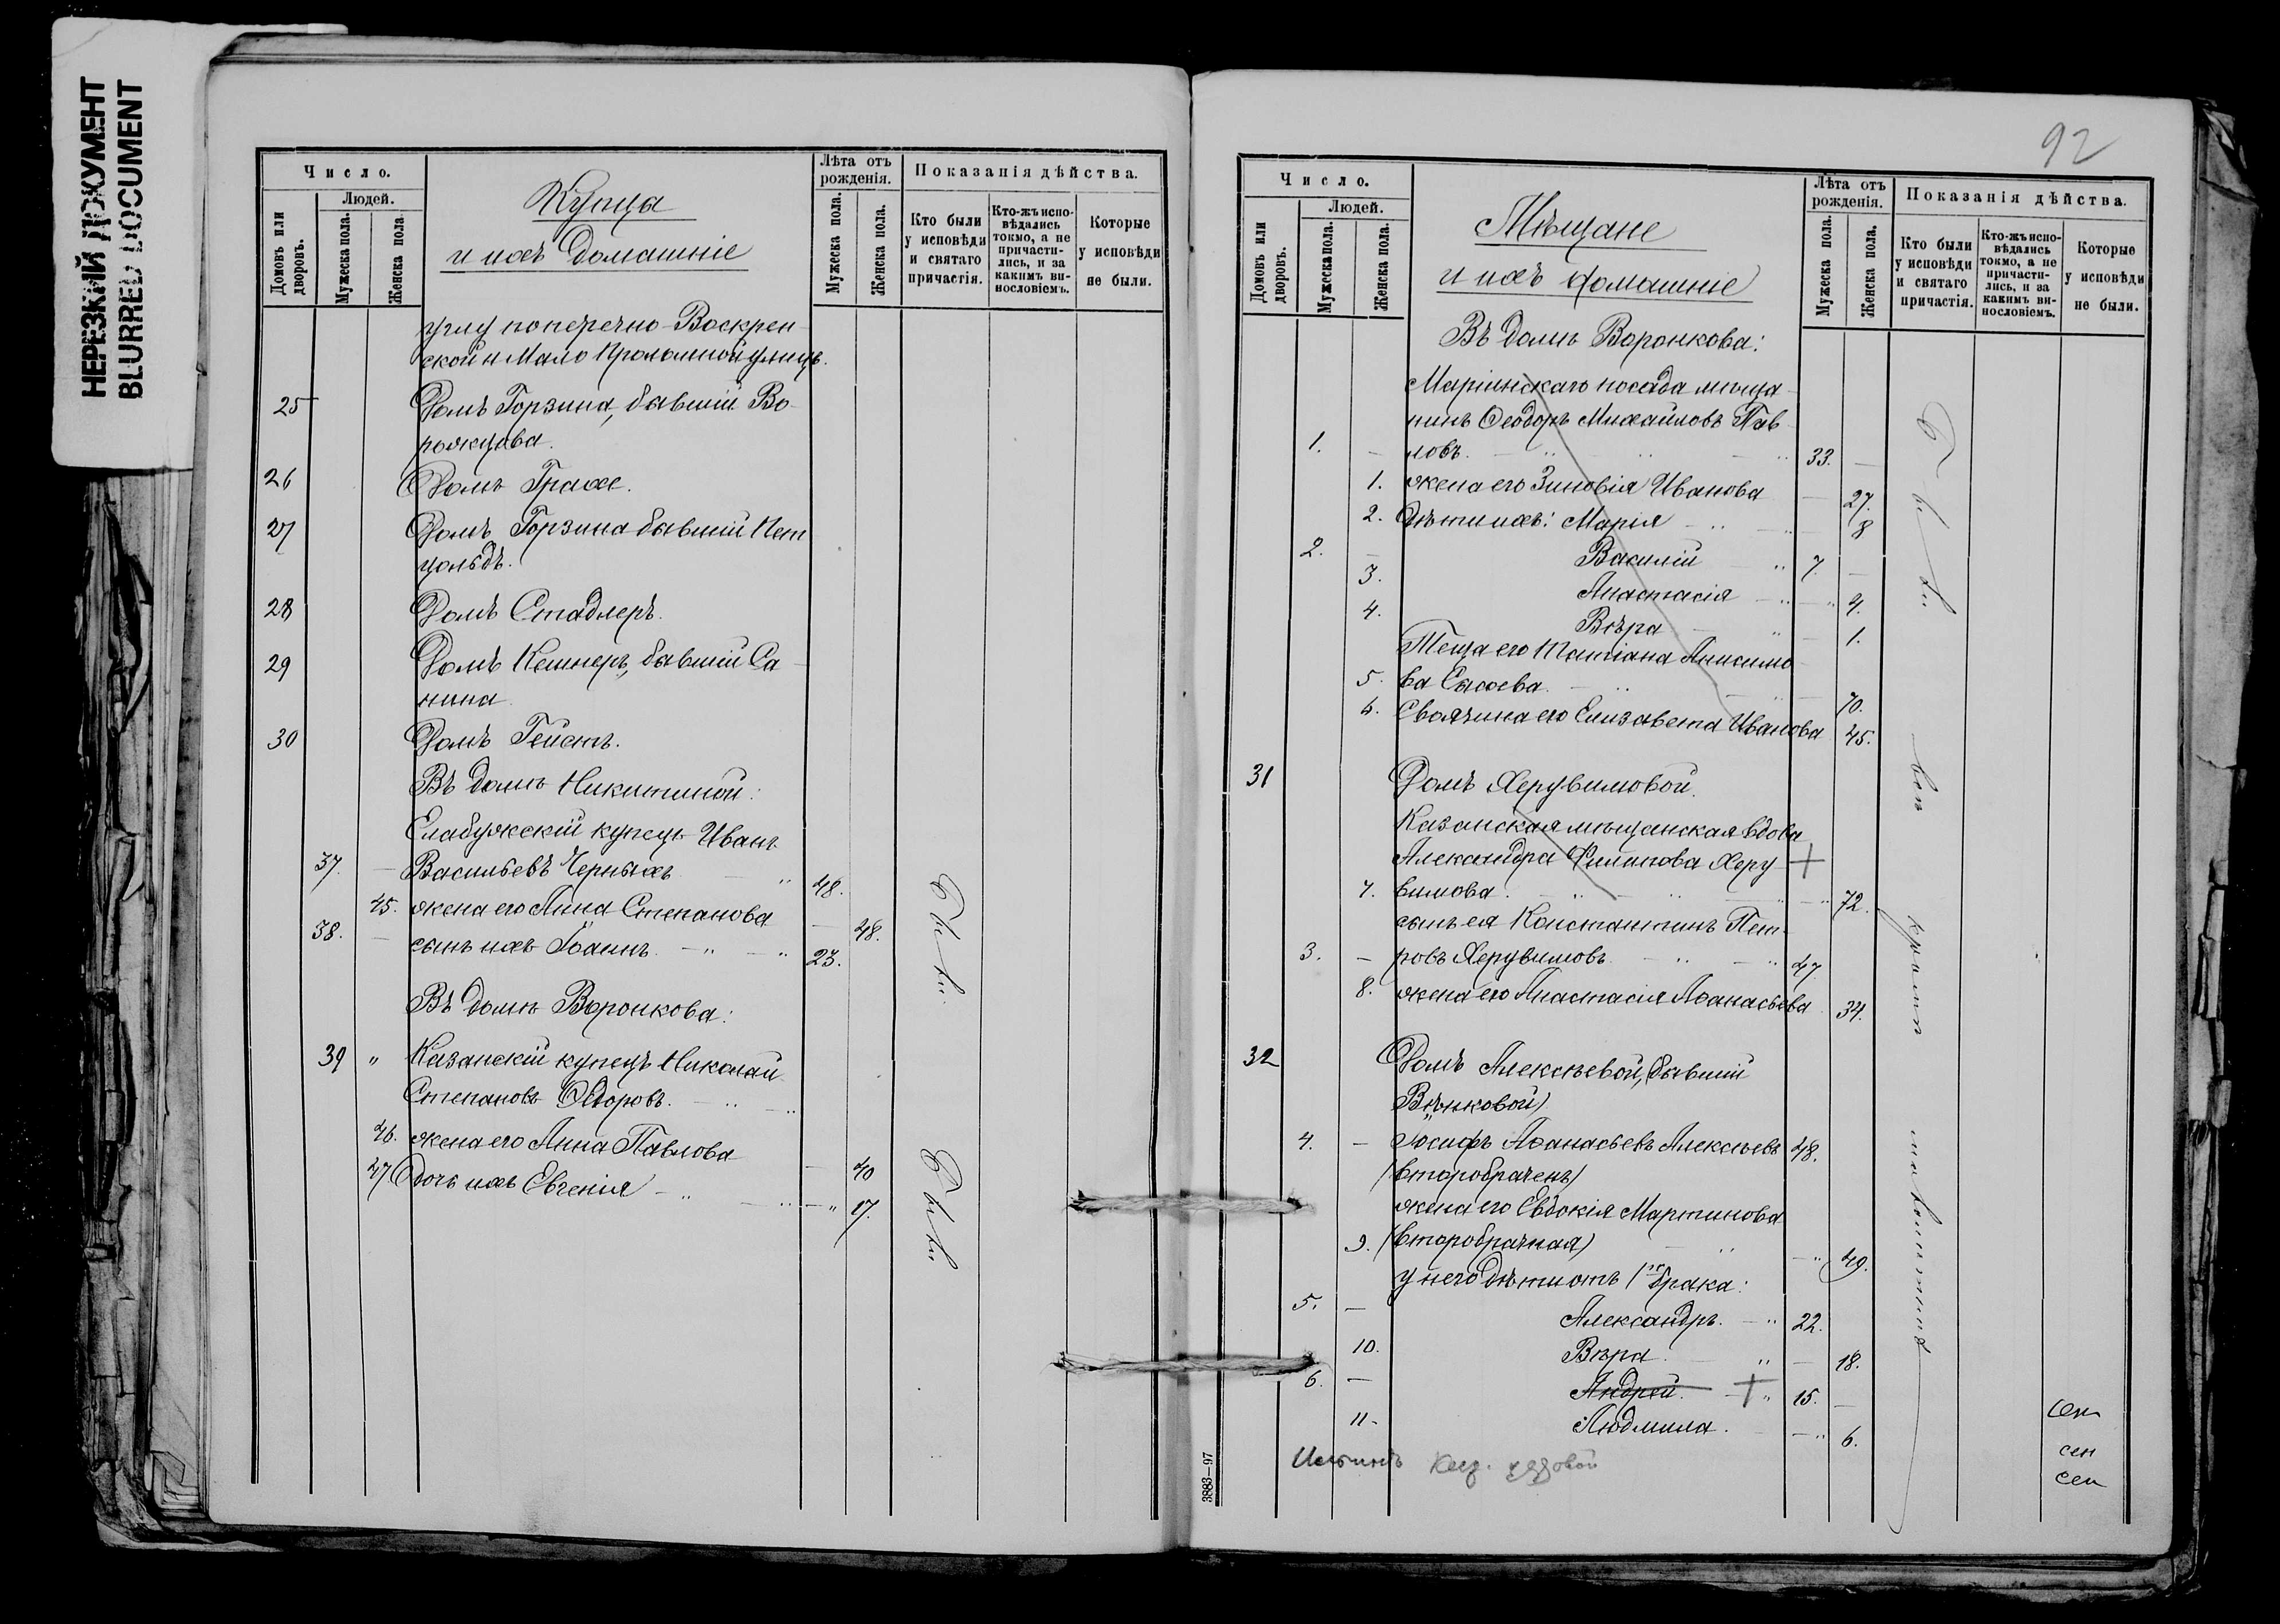 НЕРЕЗКИЙ ДОКУМЕНТ
BLURRED DOCUMENT
Число.
Людей.
Домовъ или дворовъ.
Мужеска пола.
Женска пола
Купца
и ихъ домашніе
Лѣта отъ рожденія.
Мужеска пола.
Женска пола.
Показанія дѣйства.
Кто были у исповѣди и святаго причастія.
Кто-жъ исповѣдались токмо, а не причастились, и за какимъ винословіемъ.
Которые у исповѣди не были.
углу поперечно-Воскресен-
ской и Мало Проломной улицъ.
25 Домъ Горзина, бывшій Во-
рожцова.
26 Домъ Грахе.
27 Домъ Горзина бывшій Пет
цольдъ.
28 Домъ Стадлеръ.
29 Домъ Кешнеръ, бывшій Са-
нина
30 Домъ Гейстъ.
Въ домѣ Никитиной:
Елабужскій купецъ Иванъ
37. — Васильевъ Черныхъ 48.
45. жена его Анна Степанова — 48.
38. — сынъ ихъ Іоаннъ 23.
Были
Въ домѣ Воронкова:
39 " Казанскій купецъ Николай
Степановъ Ѳедоровъ.
46. жена его Анна Павлова — 40
47 Дочь ихъ Евгенія 17.
Были
92
Число.
Людей.
Домовъ или дворовъ.
Мужеска пола.
Женска пола.
Мѣщане
и ихъ домашніе
Лѣта отъ рожденія.
Мужеска пола.
Женска пола.
Показанія дѣйства.
Кто были у исповѣди и святаго причастія.
Кто-жъ исповѣдались токмо, а не причастились, и за какимъ винословіемъ.
Которые у исповѣди не были.
Въ домѣ Воронкова:
Маріинскаго посада мѣща-
нинъ Ѳеодоръ Михайловъ Пав-
1. — ловъ. 33. —
1. жена его Зиновія Иванова — 27.
2. Дѣти ихъ: Марія 8
2. — Василій 7. —
3. Анастасія 4.
4. Вѣра 1.
Теща его Татіана Анисимо-
5. ва Сысоева. 70.
6. Своячина его Елизавета Иванова 45.
31 Домъ Херувимовой.
Казанская мѣщанская вдова
Александра Филипова Херу- +
7. вимова. 72.
сынъ ея Константинъ Пет-
3. — ровъ Херувимовъ 47.
8. жена его Анастасія Аѳанасьева 34.
32 Домъ Алексѣевой, (бывшій
Вѣньковой)
4. — Іосифъ Аѳанасьевъ Алексѣевъ 48.
(второбраченъ)
жена его Евдокія Мартинова
9. (второбрачная) 49.
у него дѣти отъ 1го брака:
5. — Александръ. 22.
10. Вѣра. — 18.
6. — Андрей. + 15. —
11. Людмила. 6.
Были
всѣ
кромѣ
сен
сен
3883—97